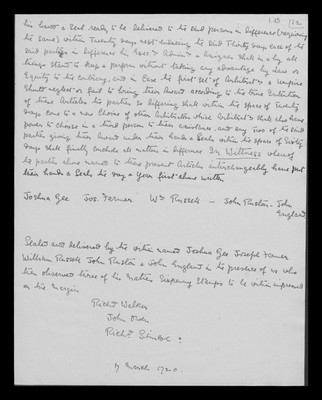 his hand & Seal ready to be delivered to the said persons in difference (requiring
the same) within Twenty days next ensuing the said Thirty days each of the
said parties in difference his Exrs & Admrs & Assigns shall in by all
things stand to keep & perform without taking any advantage by Law or
Equity to the contrary, and in Case the first set of Arbitrators & umpire
should neglect or fail to bring their Award according to the time limitation
of these Articles the parties so differing shall within the space of Twenty
days come to a new Choice of other Arbitrators which Arbitrators shall also have
power to choose in a third person to their assistance, and any Two of the said
parties giving their Award under their hands & Seals within the space of Sixty
days shall finally conclude all matters in difference In Wittness whereof
the parties above named to these present Articles interchangeably have put
their hands & Seals the day & year first above written
Joshua Gee Jos. Farmer Wm Russell – John Ruston. John
England
Sealed and delivered by the within named Joshua Gee Joseph Farmer
William Russell John Ruston & John England in the presence of us who
then observed three of his Maties Sixpenny Stamps to be within impressed
on the Margin
Richd Walker
John Owen
Richd
March 1720.